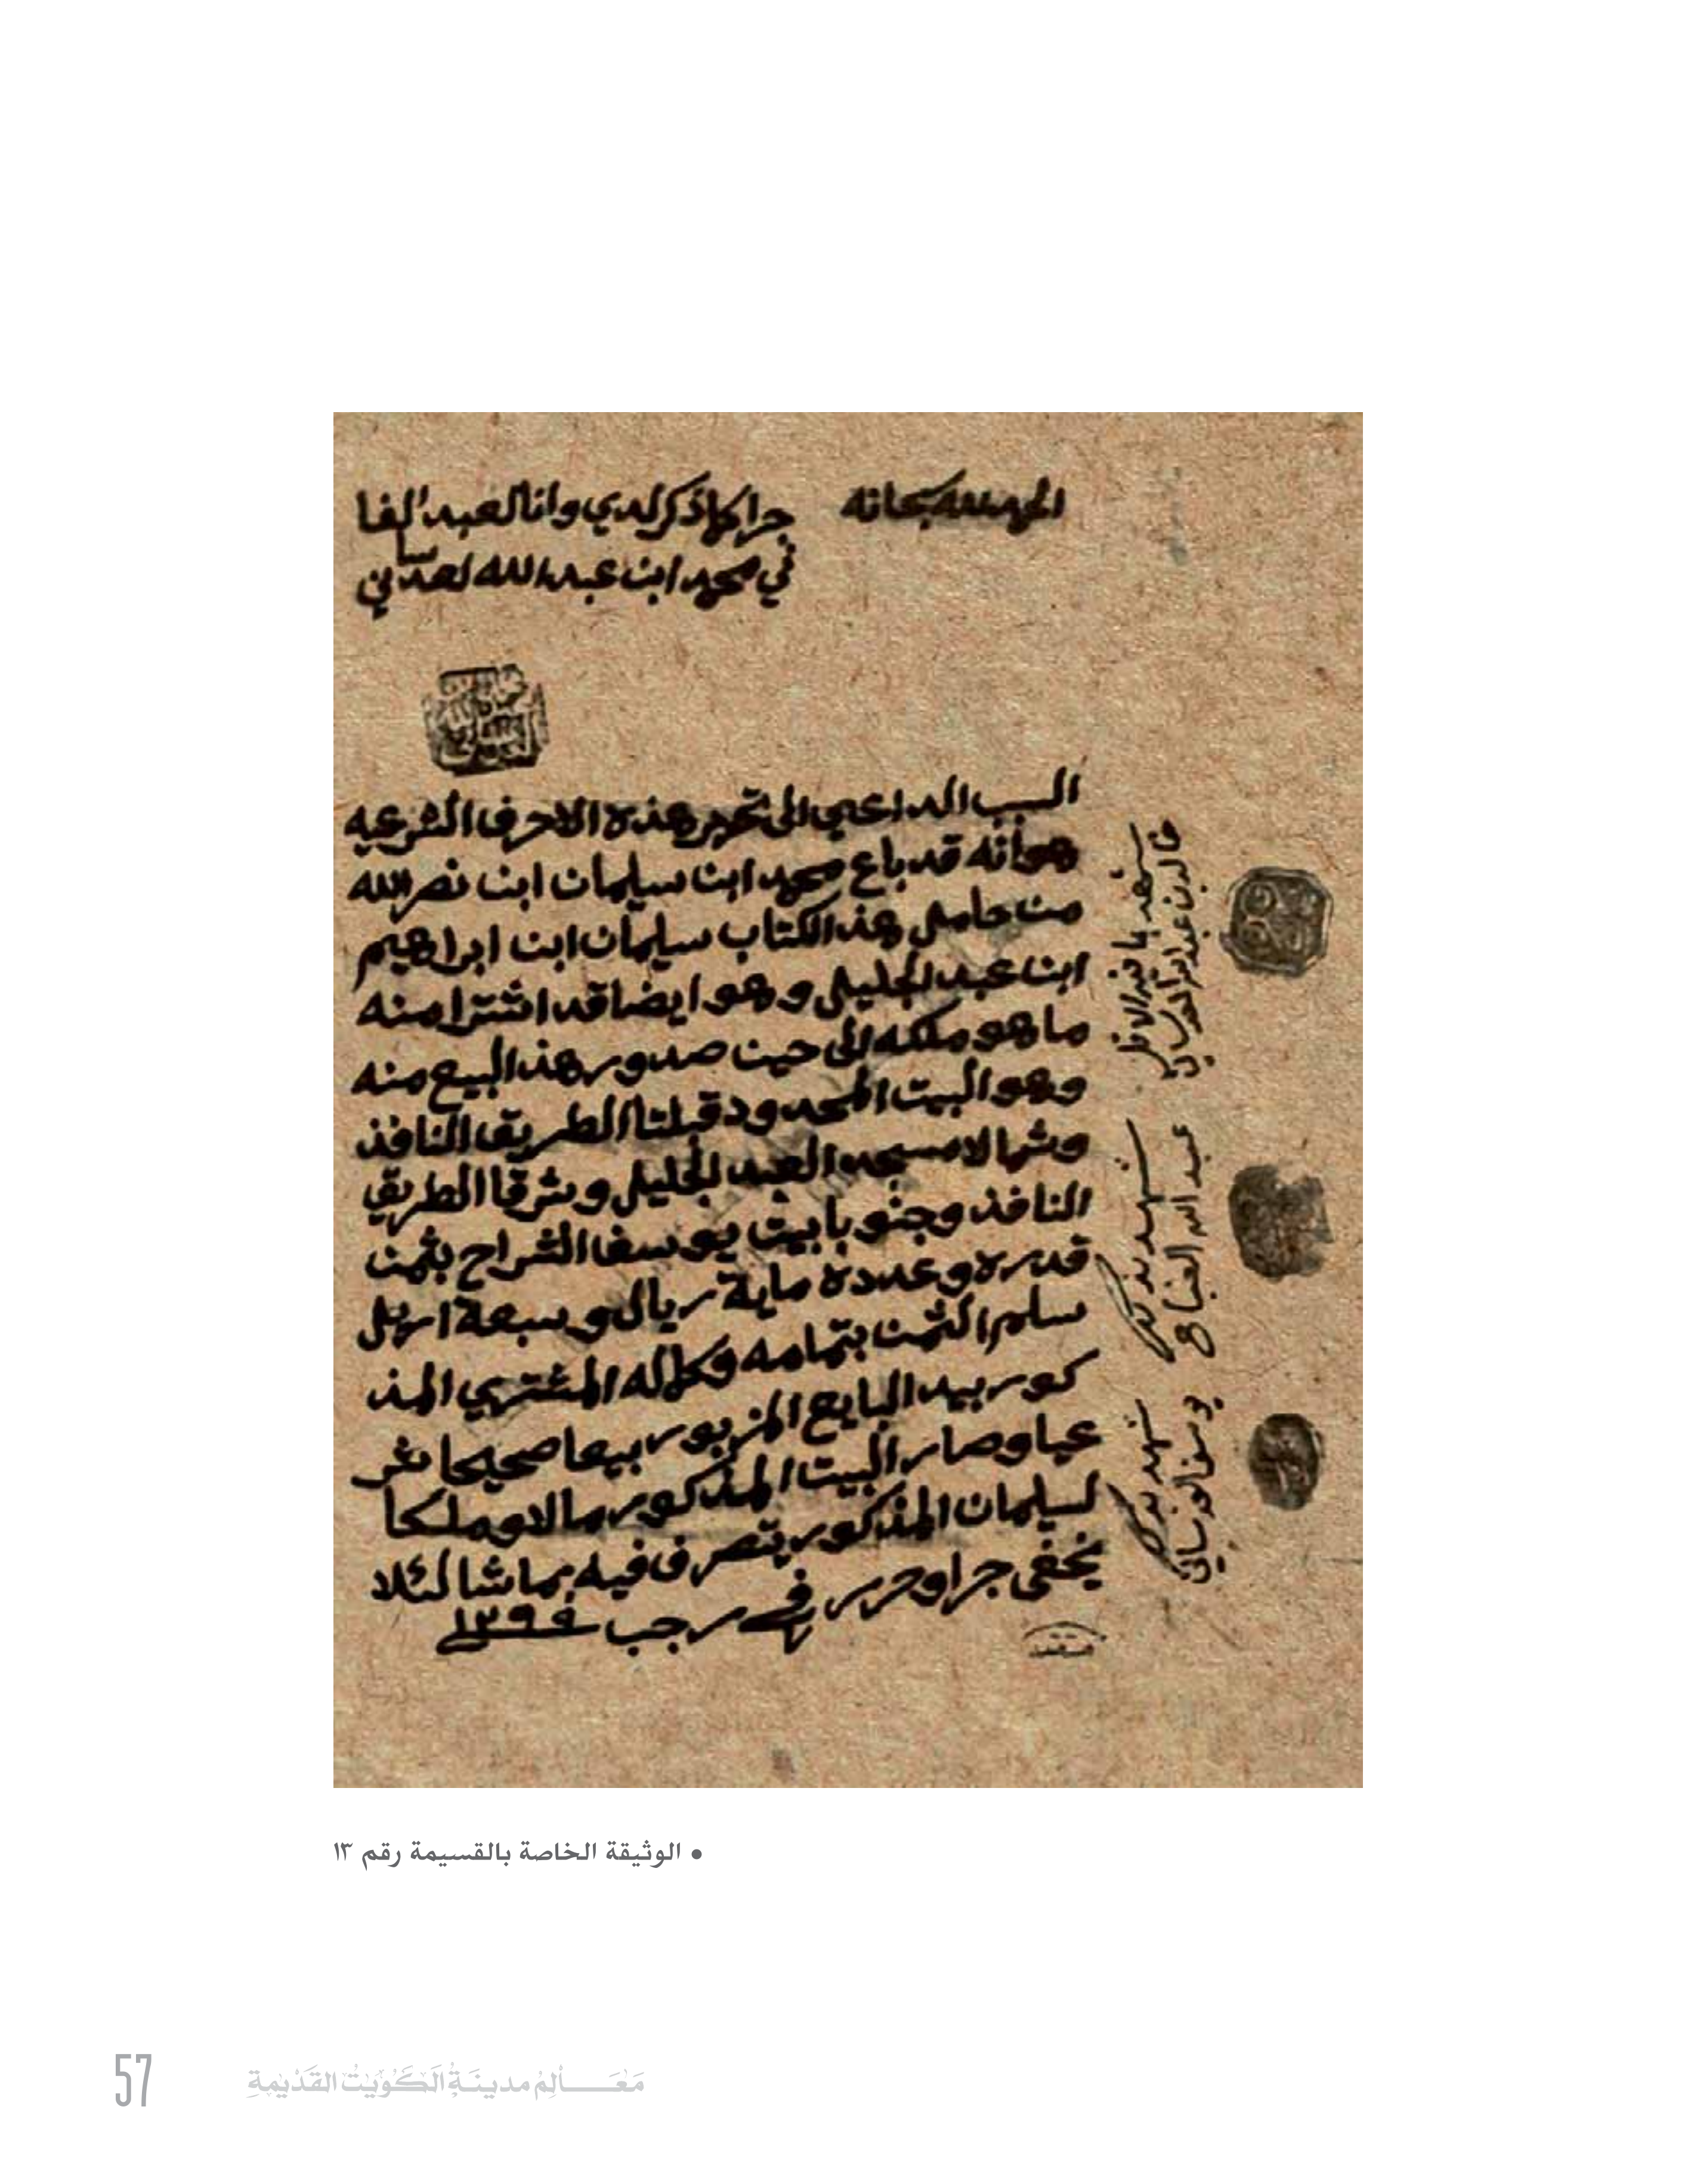 الحمد لله سبحانه
جرا كما ذكر لدي وانا العبد الفا
ني محمد ابن عبدالله العدساني
السبب الداعي الى تحرير هذه الاحرف الشرعيه
هو أنه قد باع محمد ابن سليمان ابن نصرالله
من حامل هذ الكتاب سليمان ابن ابراهيم
ابن عبد الجليل وهو ايضا قد اشترا منه
ما هو ملكه الى حين صدور هذ البيع منه
وهو البيت المحدود قبلتا الطريق النافذ
وشمالا مسجد العبد الجليل وشرقا الطريق
النافذ وجنوبا بيت يوسف الشراح بثمن
قدره وعدده ماية ريال وسبعة اريل
سلم الثمن بتمامه وكماله المشتري المذ
كور بيد البايع المزبور بيعا صحيحا شر
عيا وصار البيت المذكور مالا وملكا
لسليمان المذكور يتصرف فيه بما شا لئلا
يخفى جرا وحرر في رجب ١٢٩٩
شهد بذلك
عبد الله الصباح
شهد بذلك
• الوثيقة الخاصة بالقسيمة رقم ١٣
معالم مدينة الكويت القديمة
57